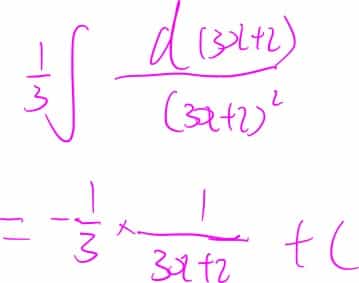 1/3 ∫ d(3x+2)/(3x+2)²
= -1/3 × 1/(3x+2) + C